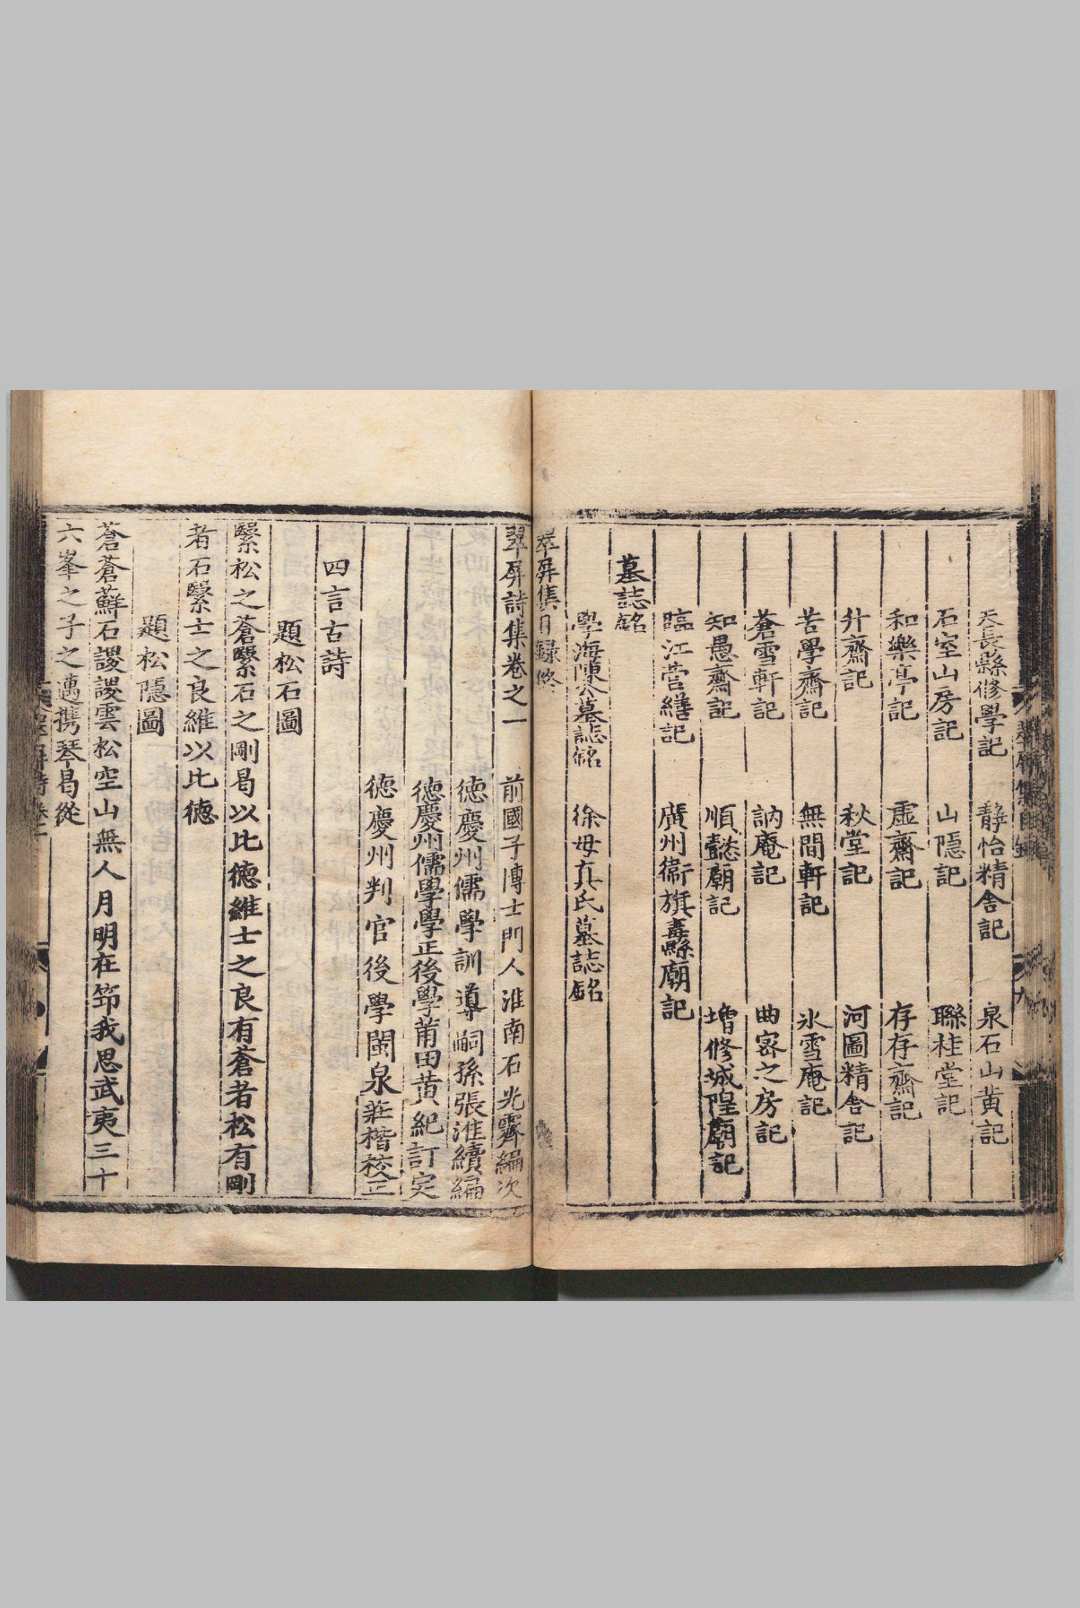 天長縣修學記　靜怡精舍記　泉石山黄記
石室山房記　山隱記　聯桂堂記
和樂亭記　虛齋記　存存齋記
升齋記　秋堂記　河圖精舍記
苦學齋記　無間軒記　氷雪庵記
蒼雪軒記　訥庵記　曲密之房記
知愚齋記　順懿廟記　增修城隍廟記
臨江營繕記　廣州衞旗纛縣廟記
墓誌銘
學海陳公墓誌銘　徐母真氏墓誌銘
翠屏集目録終
翠屏詩集卷之一　前國子博士門人淮南石光霽編次
德慶州儒學訓導嗣孫張淮續編
德慶州儒學學正後學莆田黄紀訂定
德慶州判官後學閩泉莊楷校正
四言古詩
題松石圖
繄松之蒼繄石之剛曷以比德維士之良有蒼者松有剛
者石繄士之良維以比德
題松隱圖
蒼蒼蘚石謖謖雲松空山無人月明在筇我思武夷三十
六峯之子之邁携琴曷從